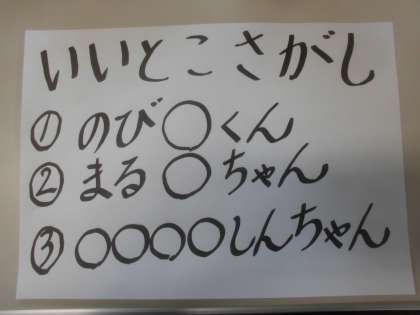 いいとこさがし
① のび○くん
② まる○ちゃん
③ ○○○○しんちゃん